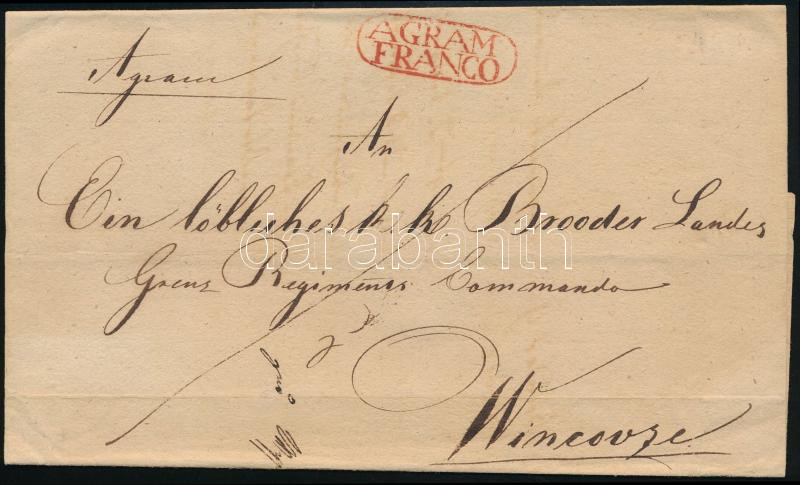 AGRAM
FRANCO
Agram
An
Ein löbliches k k Brooder Landes
darabanth
Grenz Regiments Commando
Wincovze